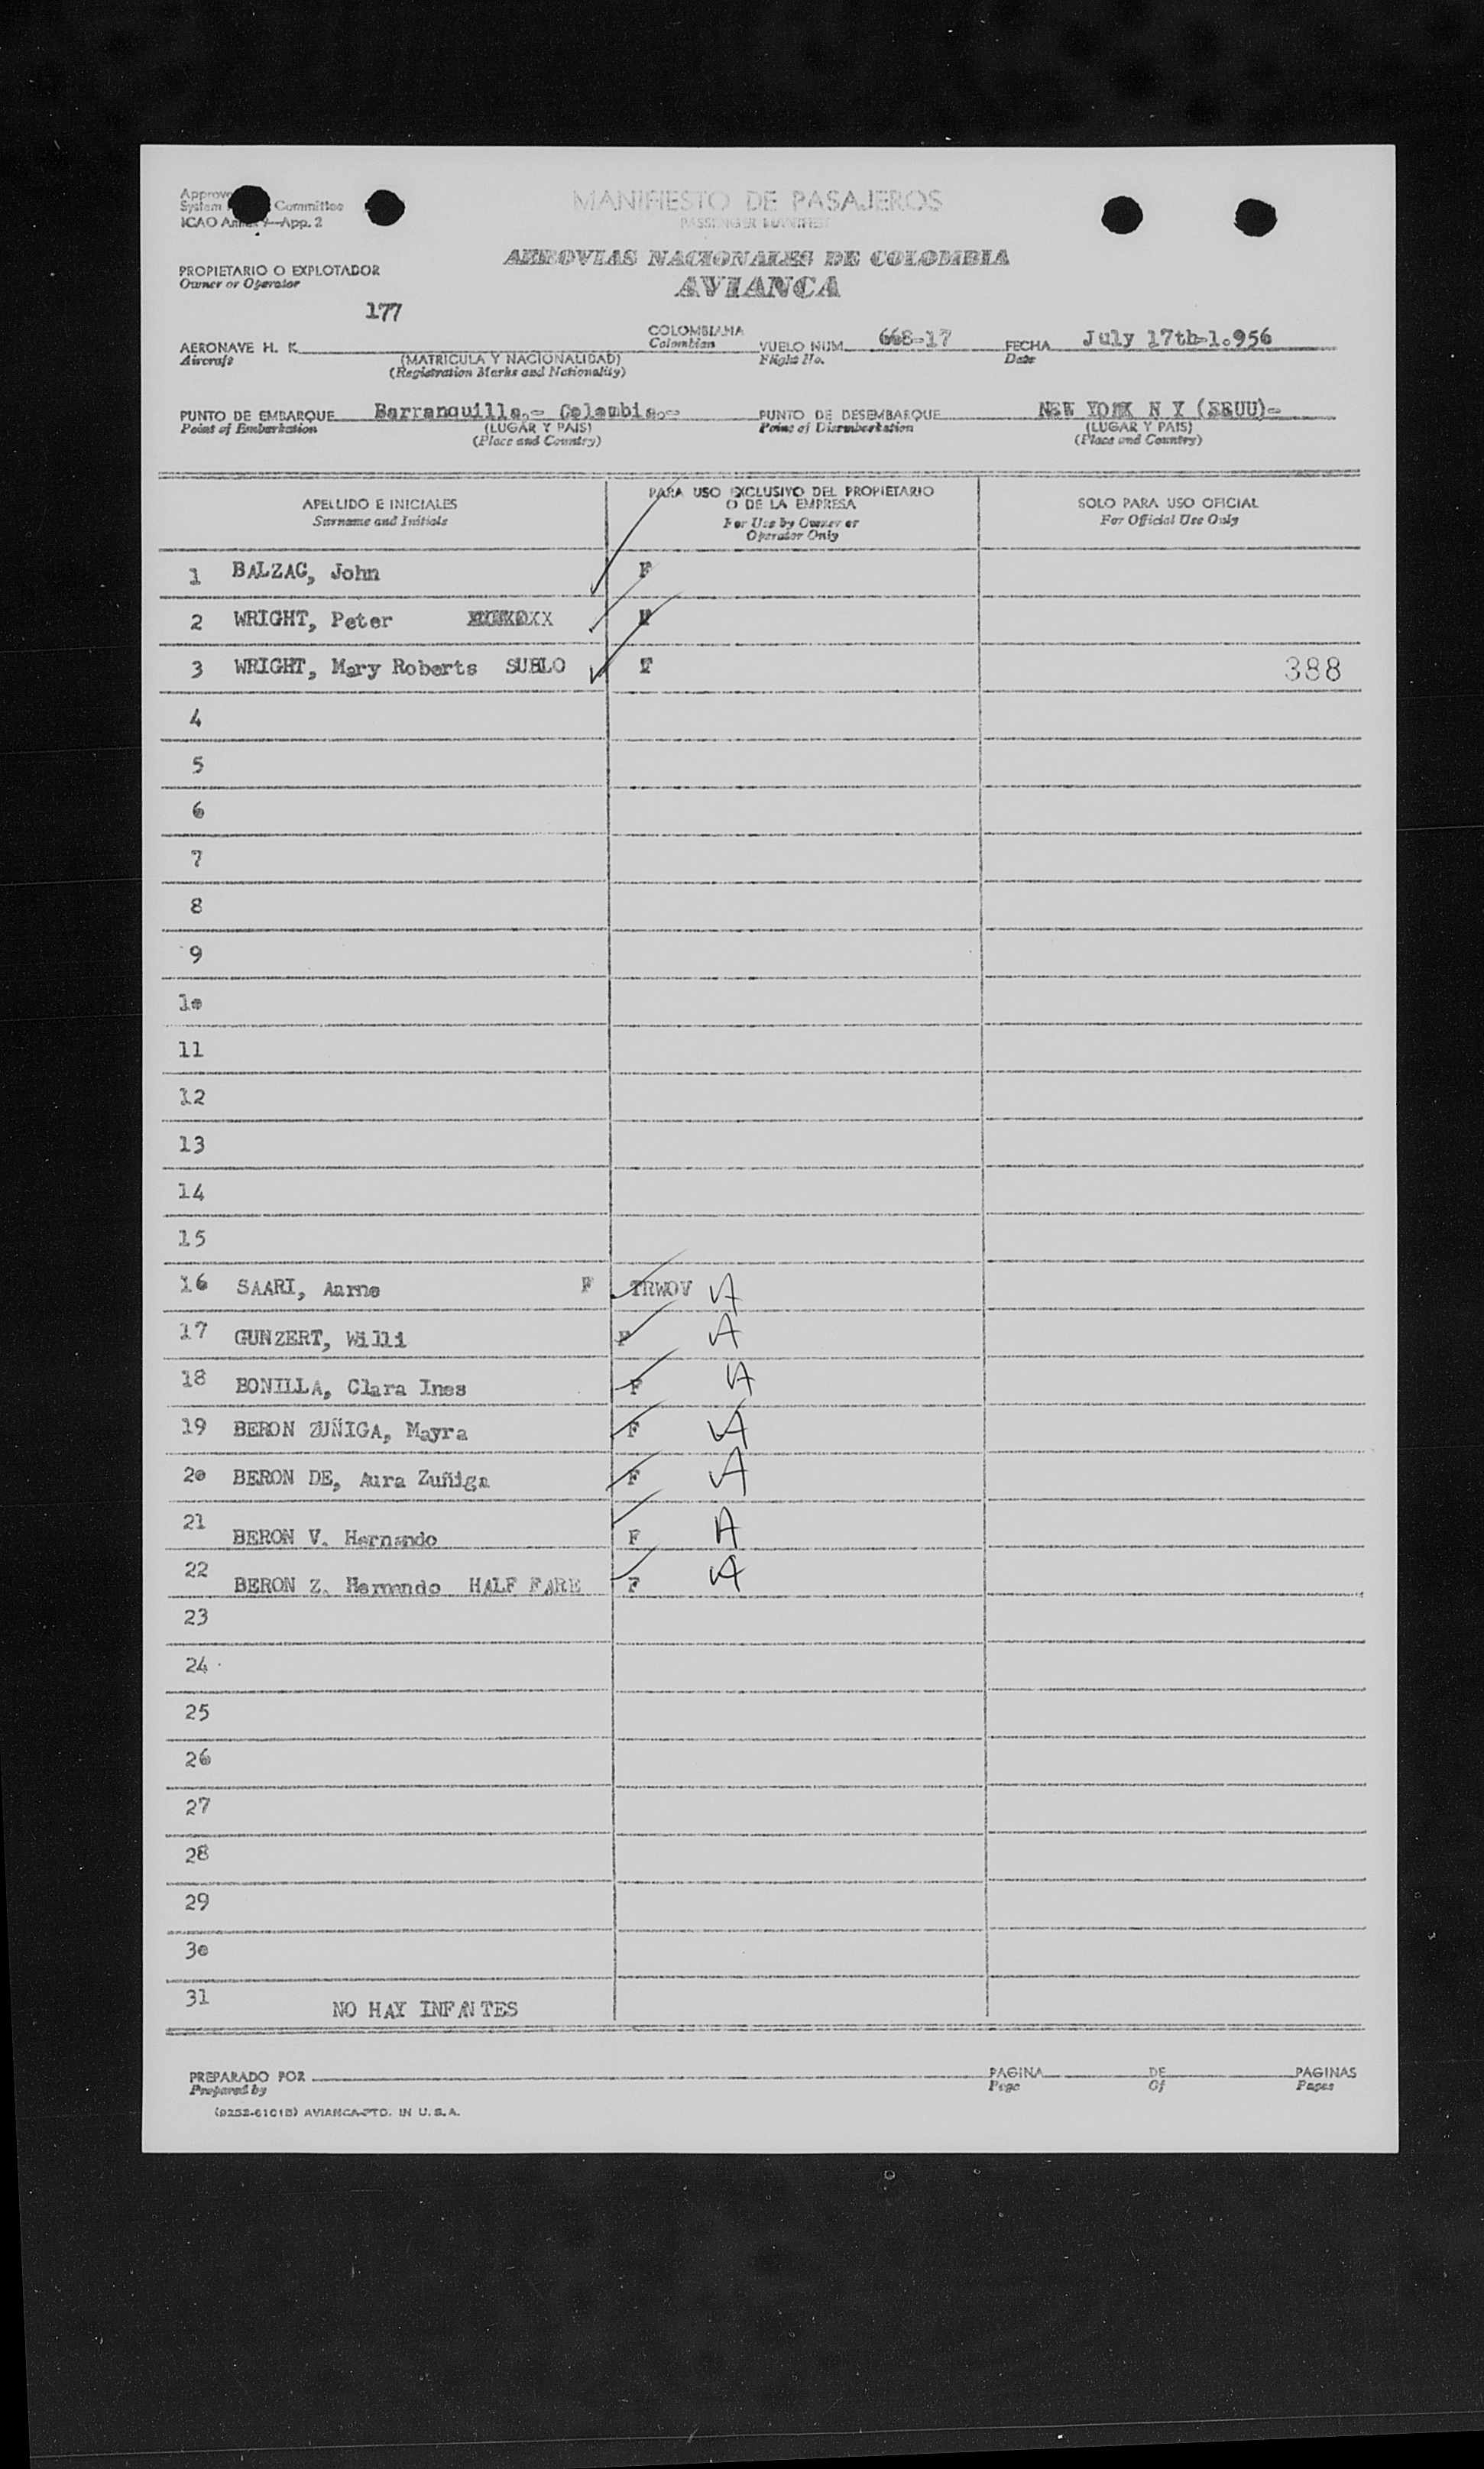 MANIFIESTO DE PASAJEROS
PASSENGER MANIFEST
System Committee
ICAO App. 2
AEROVIAS NACIONALES DE COLOMBIA
AVIANCA
PROPIETARIO O EXPLOTADOR
Owner or Operator
177
AERONAVE H. K. COLOMBIANA VUELO NUM. 668-17 FECHA July 17th-1.956
Aircraft Colombian Flight No. Date
(MATRICULA Y NACIONALIDAD)
(Registration Marks and Nationality)
PUNTO DE EMBARQUE Barranquilla.- Colombia.- PUNTO DE DESEMBARQUE NEW YORK N Y (EEUU)-
Point of Embarkation (LUGAR Y PAIS) Point of Disembarkation (LUGAR Y PAIS)
(Place and Country) (Place and Country)
APELLIDO E INICIALES PARA USO EXCLUSIVO DEL PROPIETARIO SOLO PARA USO OFICIAL
Surname and Initials O DE LA EMPRESA For Official Use Only
For Use by Owner or
Operator Only
1 BALZAC, John F
2 WRIGHT, Peter
3 WRIGHT, Mary Roberts SUBLO F 388
4
5
6
7
8
9
10
11
12
13
14
15
16 SAARI, Aarne F TRWOV A
17 GUNZERT, Willi F A
18 BONILLA, Clara Ines F A
19 BERON ZUÑIGA, Mayra F A
20 BERON DE, Aura Zuñiga F A
21 BERON V. Hernando F A
22 BERON Z. Hernando HALF FARE F A
23
24
25
26
27
28
29
30
31 NO HAY INFANTES
PREPARADO POR PAGINA DE PAGINAS
Prepared by Page Of Pages
(9252-61015) AVIANCA-PTD. IN U.S.A.